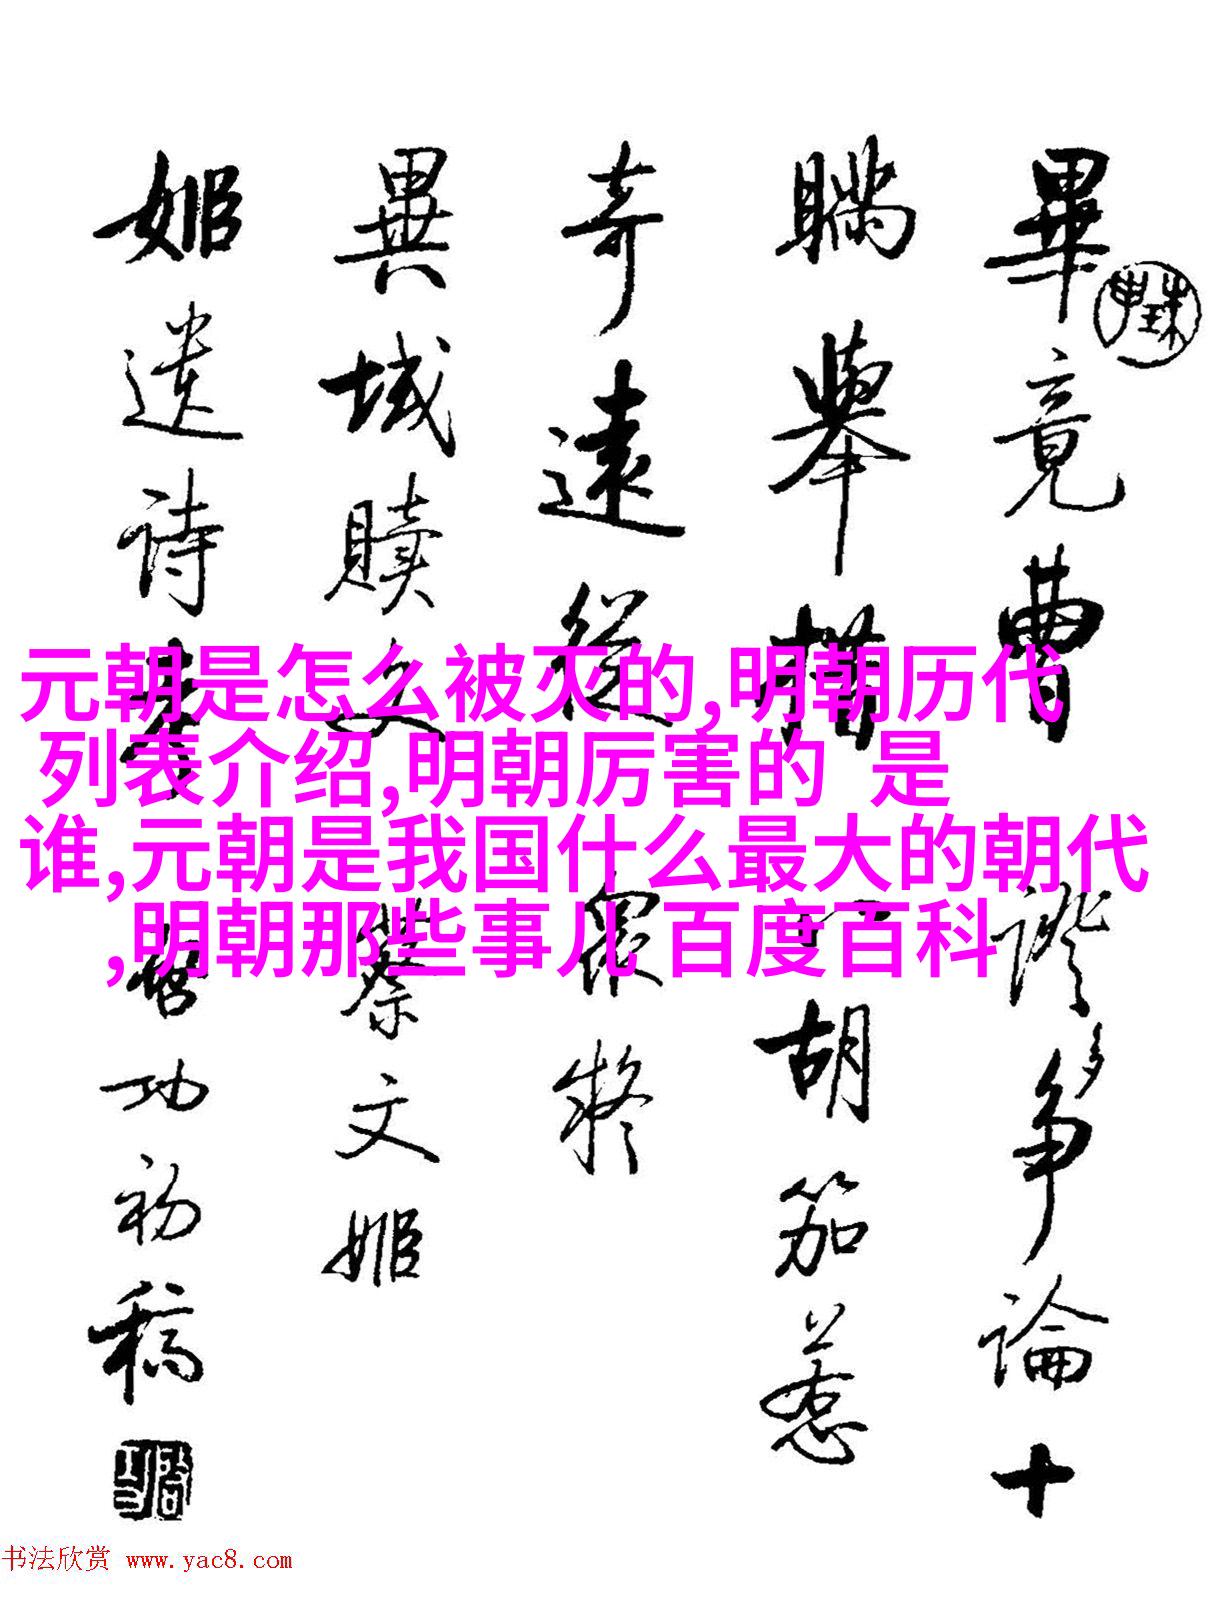 畢竟曹證多爭論十
瞞舉措胡笳惹
奇遠從眾疑
異域贖文蔡文姬
姬遺詩啓功初稿
元朝是怎么被灭的,明朝历代
列表介绍,明朝厉害的 是
谁,元朝是我国什么最大的朝代
,明朝那些事儿 百度百科
书法欣赏 www.yac8.com